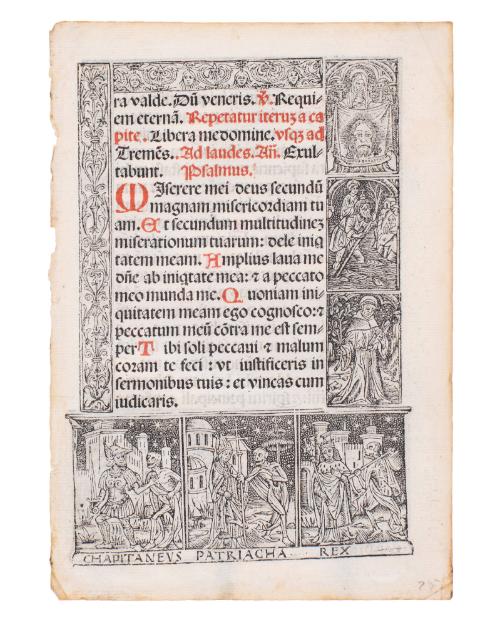 ra valde. Dũ veneris. ℣. Requi-
em eternã. Repetatur iteruz a ca
pite. Libera me domine. vsqz ad
Tremẽs. Ad laudes. Añ. Exul-
tabunt. Psalmus.
MIserere mei deus secundũ
magnam misericordiam tu
am. Et secundum multitudinez
miserationum tuarum: dele iniq
tatem meam. Amplius laua me
dñe ab iniqtate mea: ⁊ a peccato
meo munda me. Quoniam ini-
quitatem meam ego cognosco: ⁊
peccatum meũ cõtra me est sem-
per Tibi soli peccaui ⁊ malum
coram te feci: vt iustificeris in
sermonibus tuis: et vincas cum
iudicaris.
CHAPITANEVS PATRIACHA REX